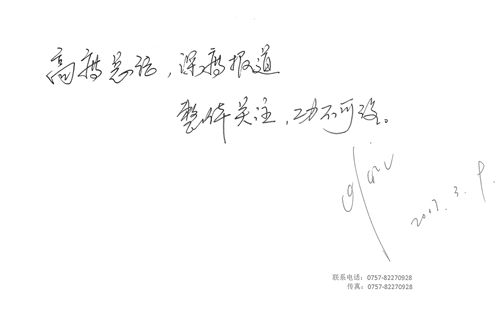 高度总结，深度报道
整体关注，功不可没。
2007.3.9.
联系电话：0757-82270928
传真：0757-82270928